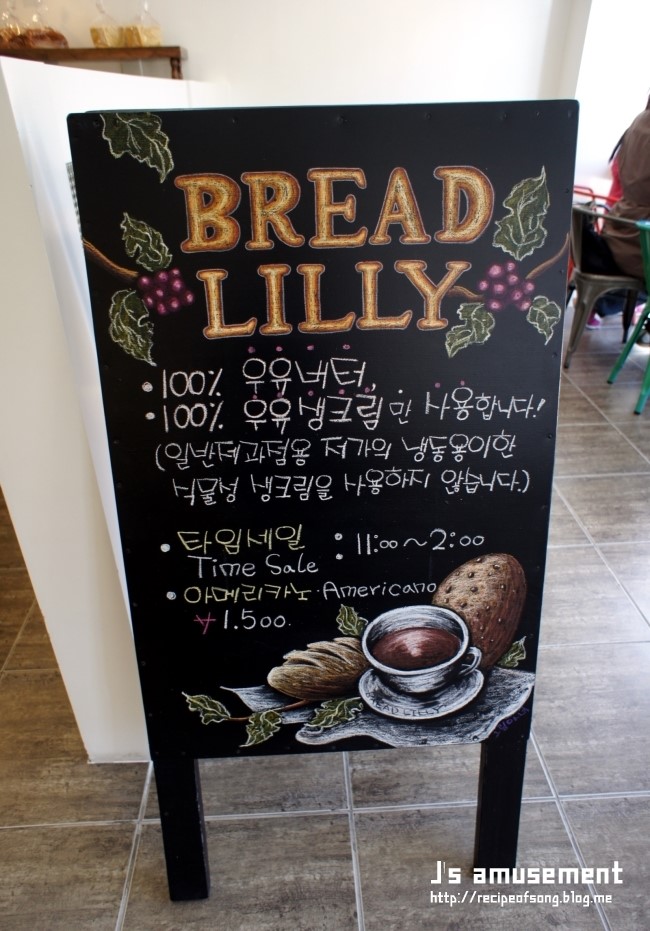 BREAD
LILLY
• 100% 우유버터,
• 100% 우유생크림만 사용합니다!
(일반제과점용 저가의 냉동용이한
식물성 생크림을 사용하지 않습니다.)
• 타임세일 : 11:00 ~ 2:00
Time Sale
• 아메리카노 · Americano
₩ 1.500.
BREAD LILLY
J's amusement
http://recipeofsong.blog.me